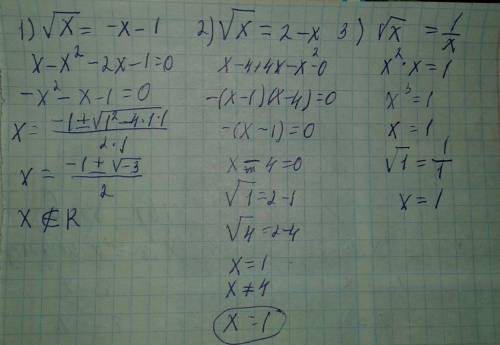 1) √x = -x-1
x-x²-2x-1=0
-x²-x-1=0
x= (-1±√(1²-4·1·1))/(2·1)
x= (-1±√-3)/2
x∉R
2) √x = 2-x
x-4+4x-x²=0
-(x-1)(x-4)=0
-(x-1)=0
x-4=0
√1=2-1
√4=2-4
x=1
x≠4
x=1
3) √x = 1/x
x²·x=1
x³=1
x=1
√1=1/1
x=1